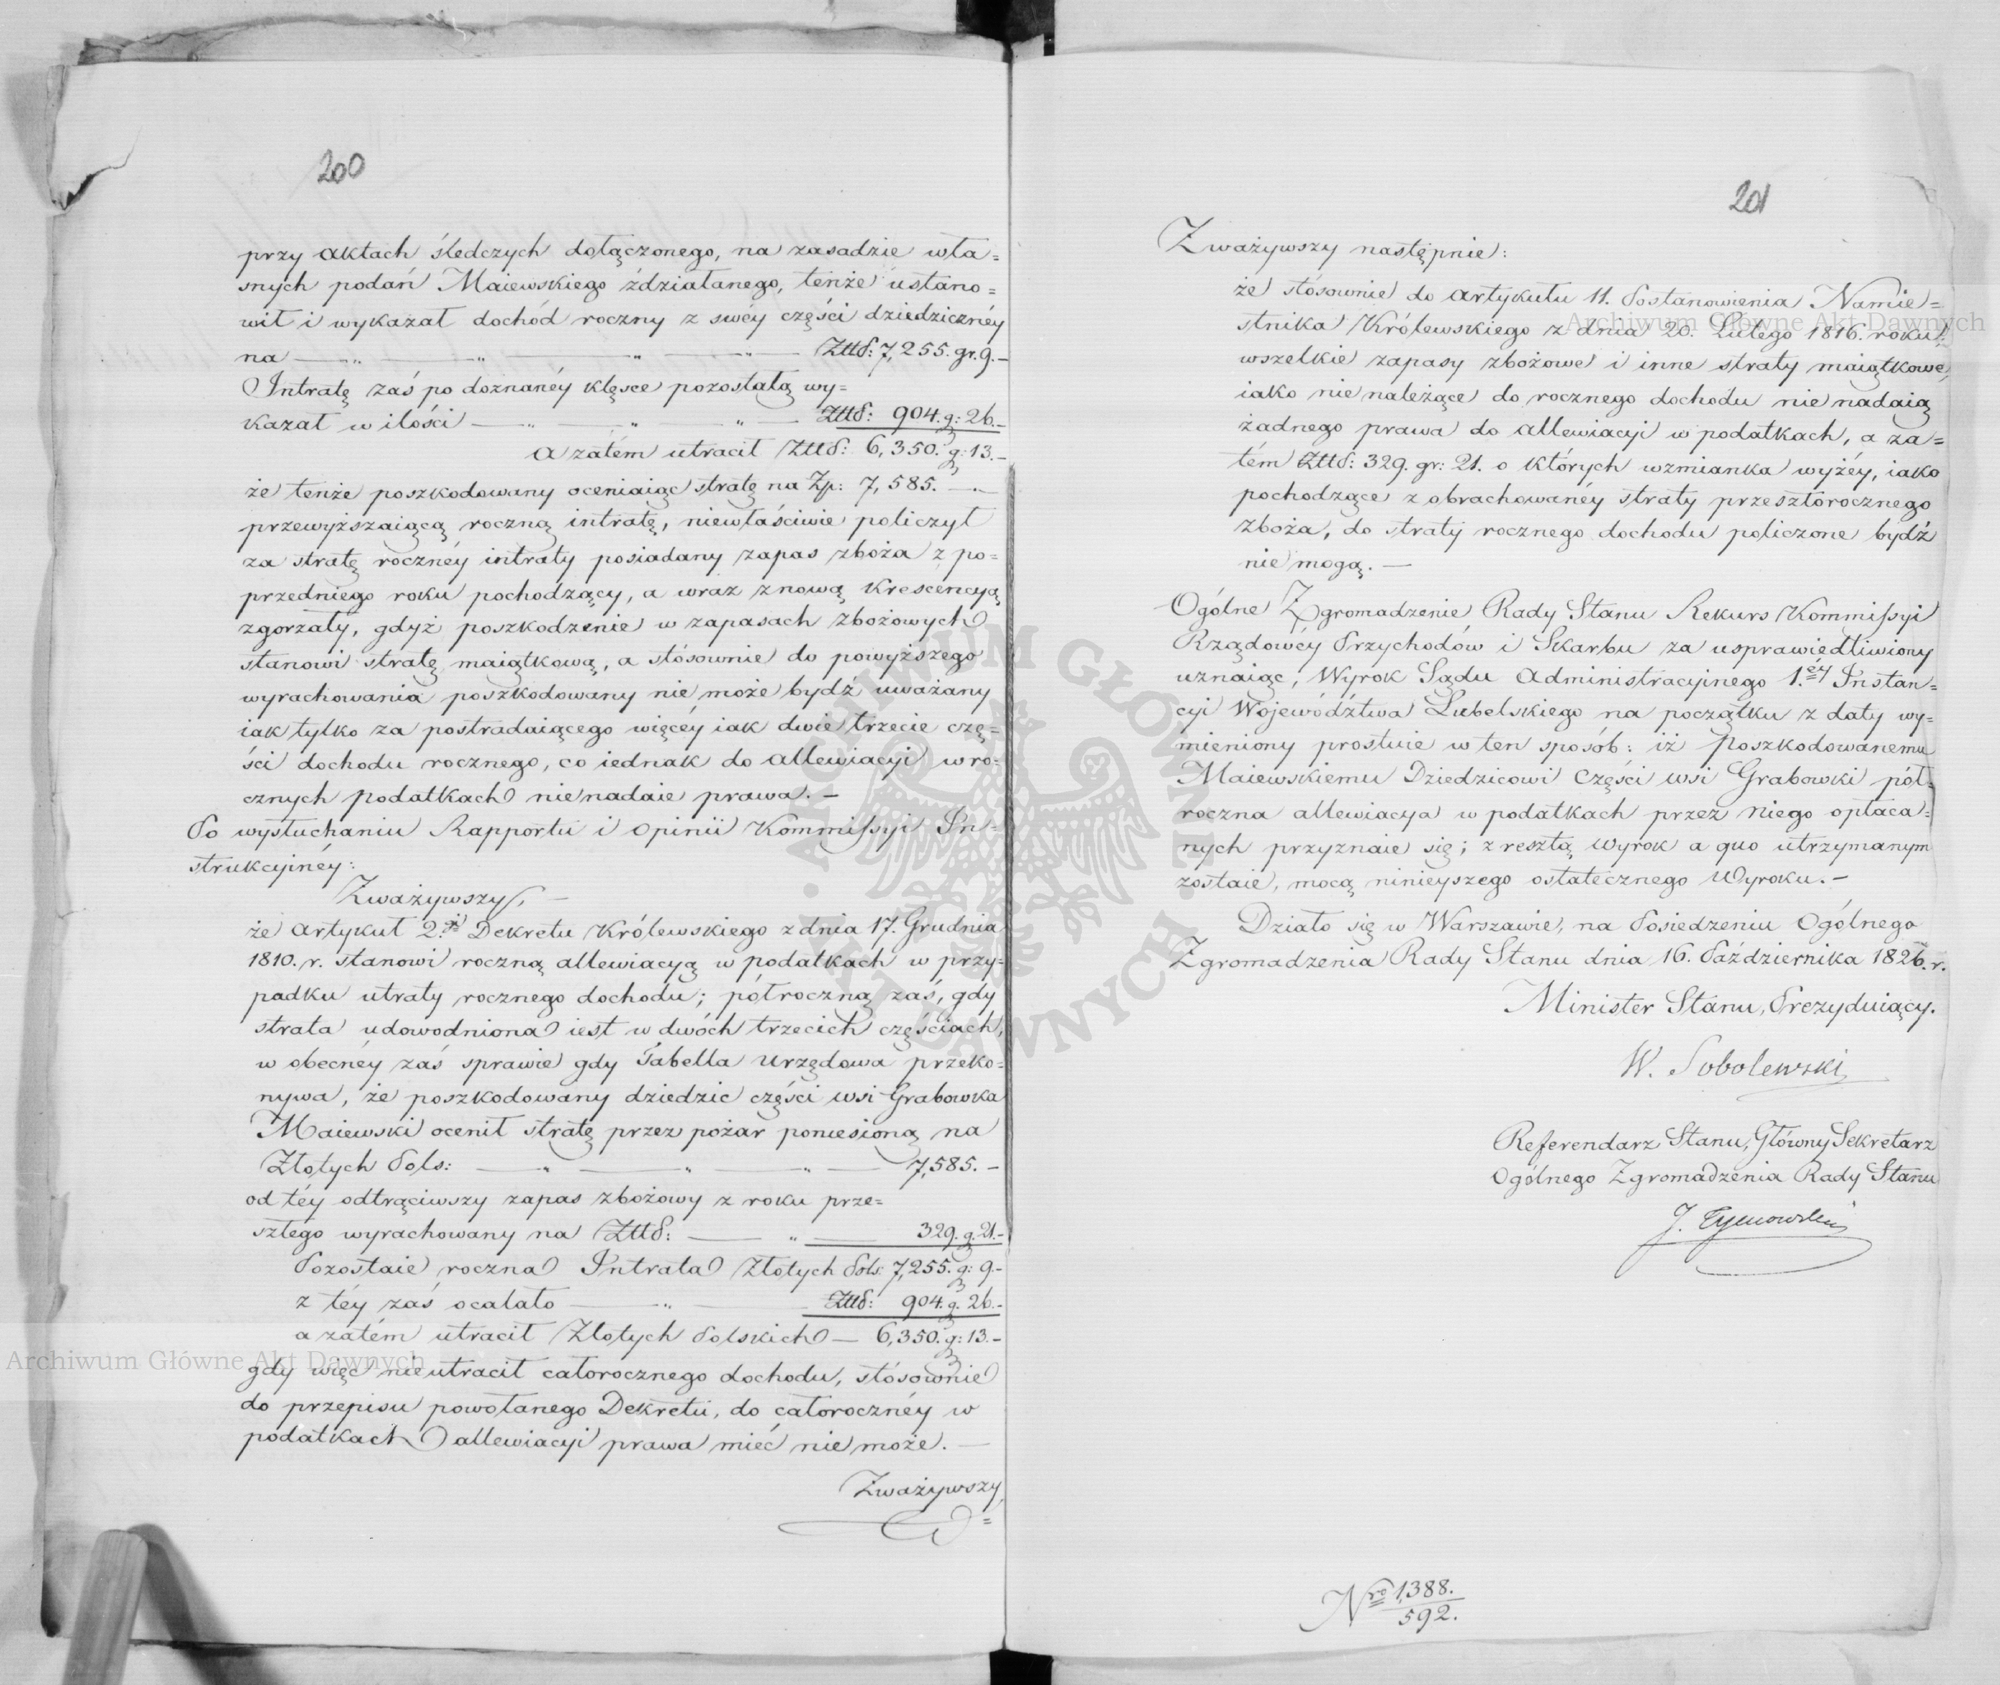 200
przy aktach śledczych dołączonego, na zasadzie wła=
snych podań Maiewskiego zdziałanego, tenże ustano=
wił i wykazał dochód roczny z swéy części dziedzicznéy
na — „ — „ — „ — „ — Złtt: 7,255. gr. 9.–
Intratę zaś po doznanéy klęsce pozostałą wy=
kazał w ilości — „ — „ — „ — Złtt: 904. g: 26.–
a zatém utracił Złtt: 6,350. g: 13.–
że tenże poszkodowany oceniaiąc stratę na Zp: 7,585. —.—
przewyższaiącą roczną intratę, niewłaściwie policzył
za stratę rocznéy intraty posiadany zapas zboża z po=
przedniego roku pochodzący, a wraz z nową krescencyą
zgorzały, gdyż poszkodzenie w zapasach zbożowych
stanowi stratę maiątkową, a stósownie do powyższego
wyrachowania poszkodowany nie może bydź uważany
iak tylko za postradaiącego więcéy iak dwie trzecie czę=
ści dochodu rocznego, co iednak do allewiacyi w ro=
cznych podatkach nie nadaie prawa. –
Po wysłuchaniu Rapportu i Opinii Kommissyi In=
strukcyinéy:
Zważywszy, –
że artykuł 2.gi Dekretu Królewskiego z dnia 17. Grudnia
1810. r. stanowi roczną allewiacyą w podatkach w przy=
padku utraty rocznego dochodu; półroczną zaś, gdy
strata udowodniona iest w dwóch trzecich częściach,
w obecnéy zaś sprawie gdy Tabella Urzędowa przeko=
nywa, że poszkodowany dziedzic części wsi Grabowka
Maiewski ocenił stratę przez pożar poniesioną na
Złotych Pols: — „ — „ — „ — 7,585. –
od téy odtrąciwszy zapas zbożowy z roku prze=
szłego wyrachowany na Złtt: — „ — 329. g. 21.–
Pozostaie roczna Intrata Złotych Pols: 7,255. g: 9.–
z téy zaś ocalało — „ — Złtt: 904. g. 26.–
a zatém utracił Złotych Polskich — 6,350. g: 13.–
gdy więc nie utracił całorocznego dochodu, stósownie
do przepisu powołanego Dekretu, do całorocznéy w
podatkach allewiacyi prawa mieć nie może. —
Zważywszy
=
201
Zważywszy następnie:
że stósownie do artykułu 11. Postanowienia Namie=
stnika Królewskiego z dnia 20. Lutego 1816. roku,
wszelkie zapasy zbożowe i inne straty maiątkowe,
iako nie należące do rocznego dochodu nie nadaią
żadnego prawa do allewiacyi w podatkach, a za=
tém Złtt: 329. gr: 21. o których wzmianka wyżéy, iako
pochodzące z obrachowanéy straty przeszłorocznego
zboża, do straty rocznego dochodu policzone bydź
nie mogą. —
Ogólne Zgromadzenie Rady Stanu Rekurs Kommissyi
Rządowéy Przychodów i Skarbu za usprawiedliwiony
uznaiąc, Wyrok Sądu Administracyinego 1.éy Instan=
cyi Województwa Lubelskiego na początku z daty wy=
mieniony prostuie w ten sposób: iż Poszkodowanemu
Maiewskiemu Dziedzicowi Części wsi Grabowki pół=
roczna allewiacya w podatkach przez niego opłaca=
nych przyznaie się; z resztą Wyrok a quo utrzymanym
zostaie, mocą ninieyszego ostatecznego Wyroku. –
Działo się w Warszawie, na Posiedzeniu Ogólnego
Zgromadzenia Rady Stanu dnia 16. Października 1826. r.
Minister Stanu, Prezyduiący.
W. Sobolewski
Referendarz Stanu, Główny Sekretarz
Ogólnego Zgromadzenia Rady Stanu
J. Tymowski
Nro 1,388.
592.
Archiwum Główne Akt Dawnych
Archiwum Główne Akt Dawnych
ARCHIWUM GŁÓWNE AKT DAWNYCH